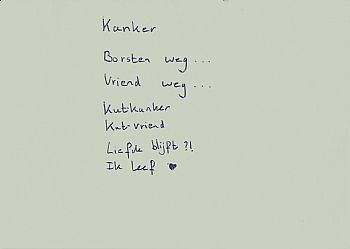 Kanker
Borsten weg...
Vriend weg...
Kutkanker
Kut-vriend
Liefde blijft?!
Ik leef ♥